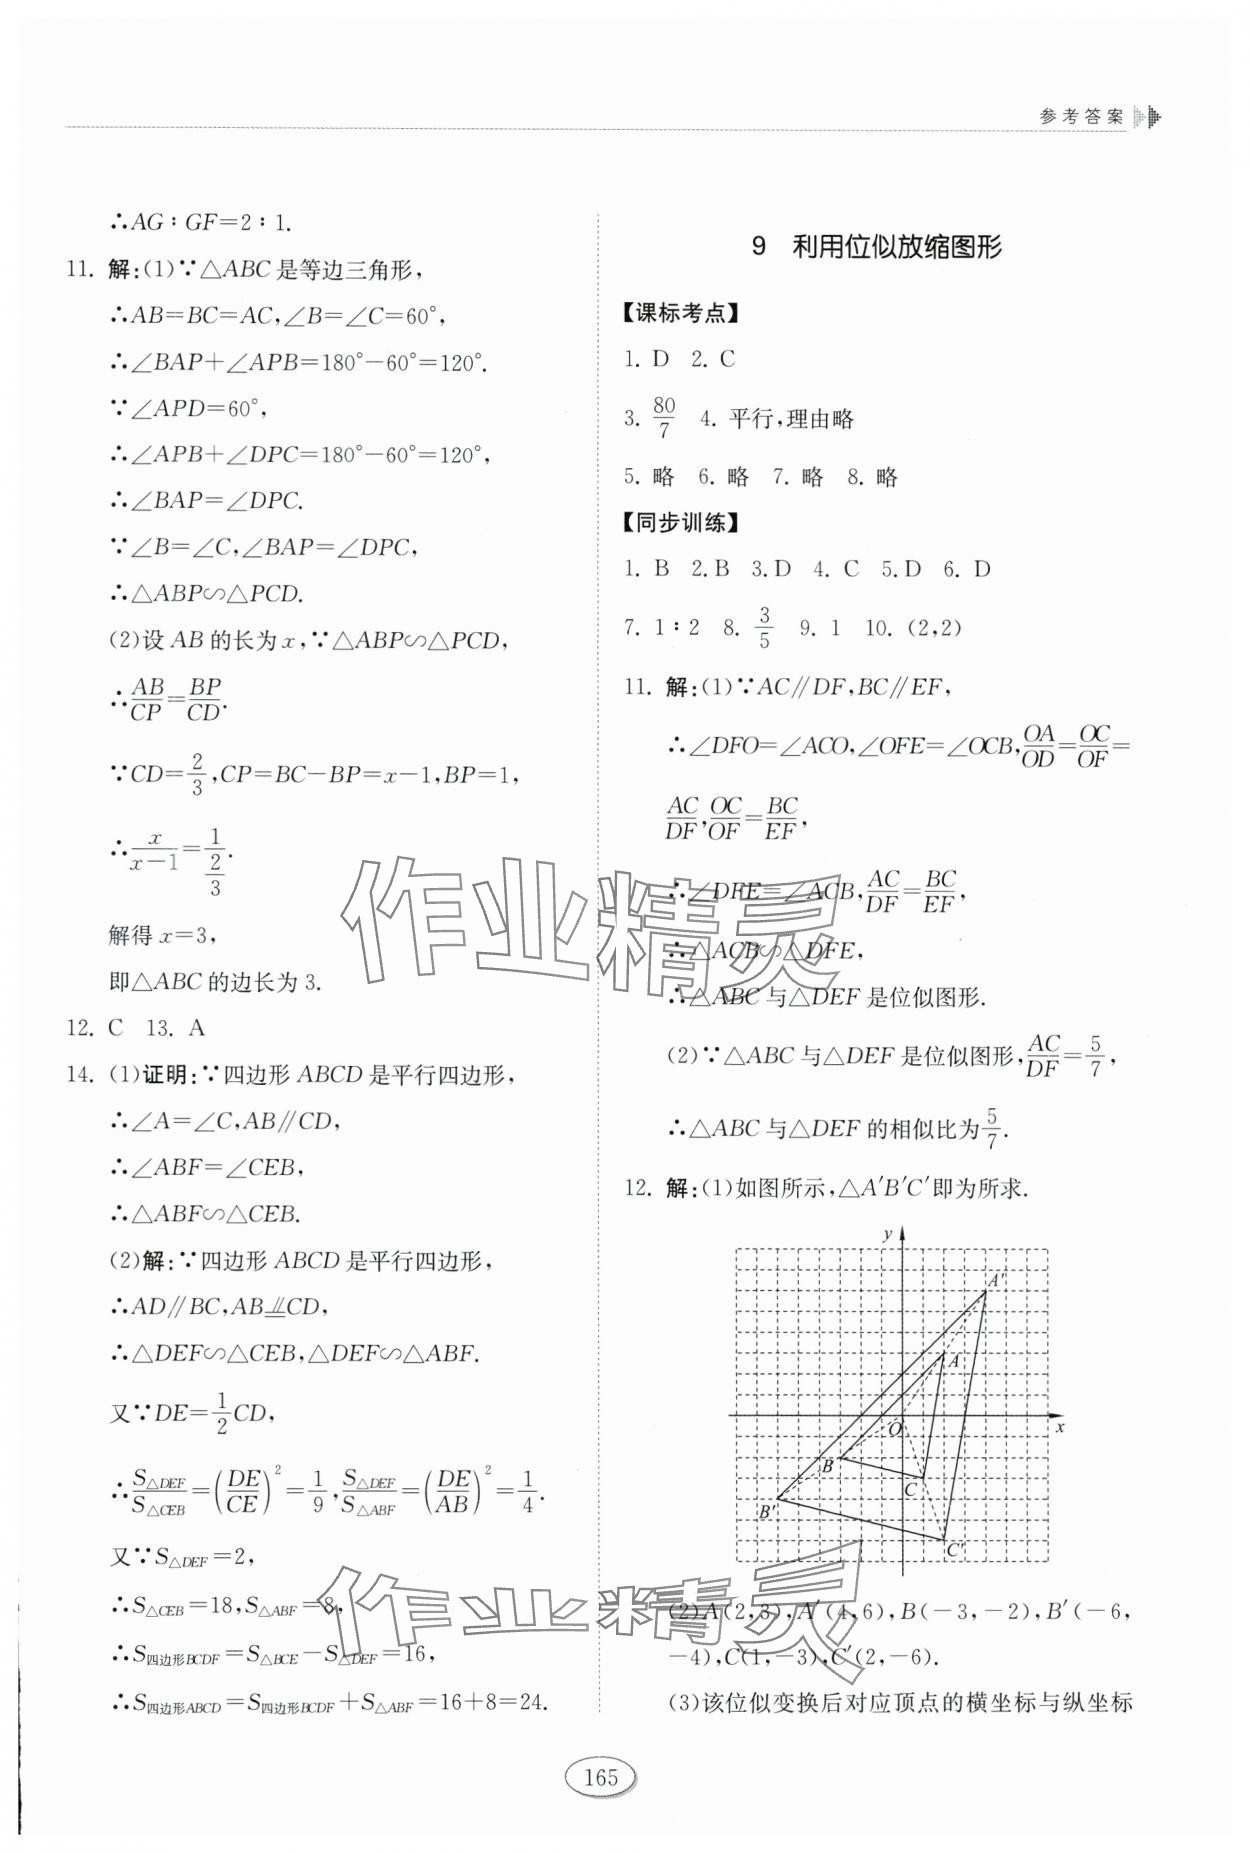 参考答案
∴AG∶GF=2∶1.
11. 解:(1)∵△ABC是等边三角形,
∴AB=BC=AC,∠B=∠C=60°,
∴∠BAP+∠APB=180°-60°=120°.
∵∠APD=60°,
∴∠APB+∠DPC=180°-60°=120°,
∴∠BAP=∠DPC.
∵∠B=∠C,∠BAP=∠DPC,
∴△ABP∽△PCD.
(2)设AB的长为x,∵△ABP∽△PCD,
∴AB/CP=BP/CD.
∵CD=2/3,CP=BC-BP=x-1,BP=1,
∴x/(x-1)=1/(2/3).
解得x=3,
即△ABC的边长为3.
12. C 13. A
14. (1)证明:∵四边形ABCD是平行四边形,
∴∠A=∠C,AB∥CD,
∴∠ABF=∠CEB,
∴△ABF∽△CEB.
(2)解:∵四边形ABCD是平行四边形,
∴AD∥BC,AB⫽CD,
∴△DEF∽△CEB,△DEF∽△ABF.
又∵DE=1/2CD,
∴S△DEF/S△CEB=(DE/CE)²=1/9,S△DEF/S△ABF=(DE/AB)²=1/4.
又∵S△DEF=2,
∴S△CEB=18,S△ABF=8,
∴S四边形BCDF=S△BCE-S△DEF=16,
∴S四边形ABCD=S四边形BCDF+S△ABF=16+8=24.
9 利用位似放缩图形
【课标考点】
1. D 2. C
3. 80/7 4. 平行,理由略
5. 略 6. 略 7. 略 8. 略
【同步训练】
1. B 2.B 3.D 4. C 5.D 6. D
7. 1∶2 8. 3/5 9. 1 10. (2,2)
11. 解:(1)∵AC∥DF,BC∥EF,
∴∠DFO=∠ACO,∠OFE=∠OCB,OA/OD=OC/OF=
AC/DF,OC/OF=BC/EF,
∴∠DFE=∠ACB,AC/DF=BC/EF,
∴△ACB∽△DFE,
∴△ABC与△DEF是位似图形.
(2)∵△ABC与△DEF是位似图形,AC/DF=5/7,
∴△ABC与△DEF的相似比为5/7.
12. 解:(1)如图所示,△A′B′C′即为所求.
y
A′
A
O
x
B
C
B′
C′
(2)A(2,3),A′(4,6),B(-3,-2),B′(-6,
-4),C(1,-3),C′(2,-6).
(3)该位似变换后对应顶点的横坐标与纵坐标
作业精灵
作业精灵
165